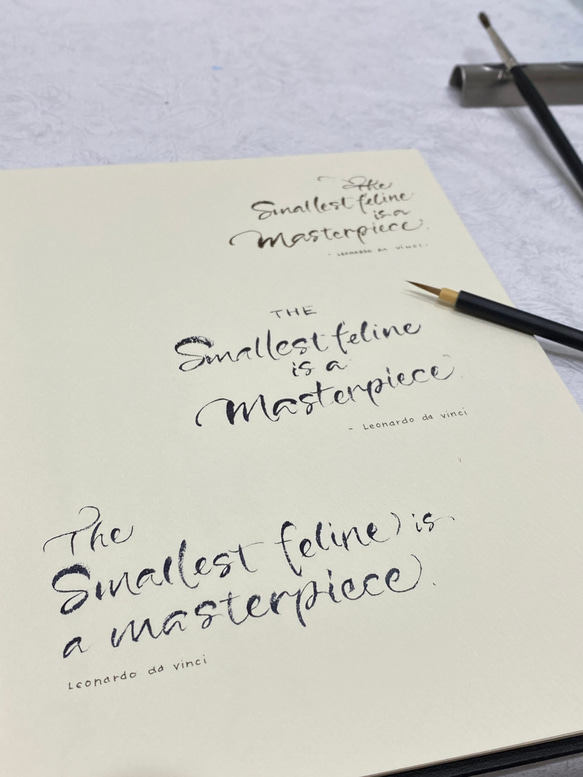 The
Smallest feline
is a
Masterpiece.
- Leonardo da vinci.
THE
Smallest feline
is a
Masterpiece.
- Leonardo da vinci
The
Smallest feline is.
a masterpiece.
Leonardo da vinci